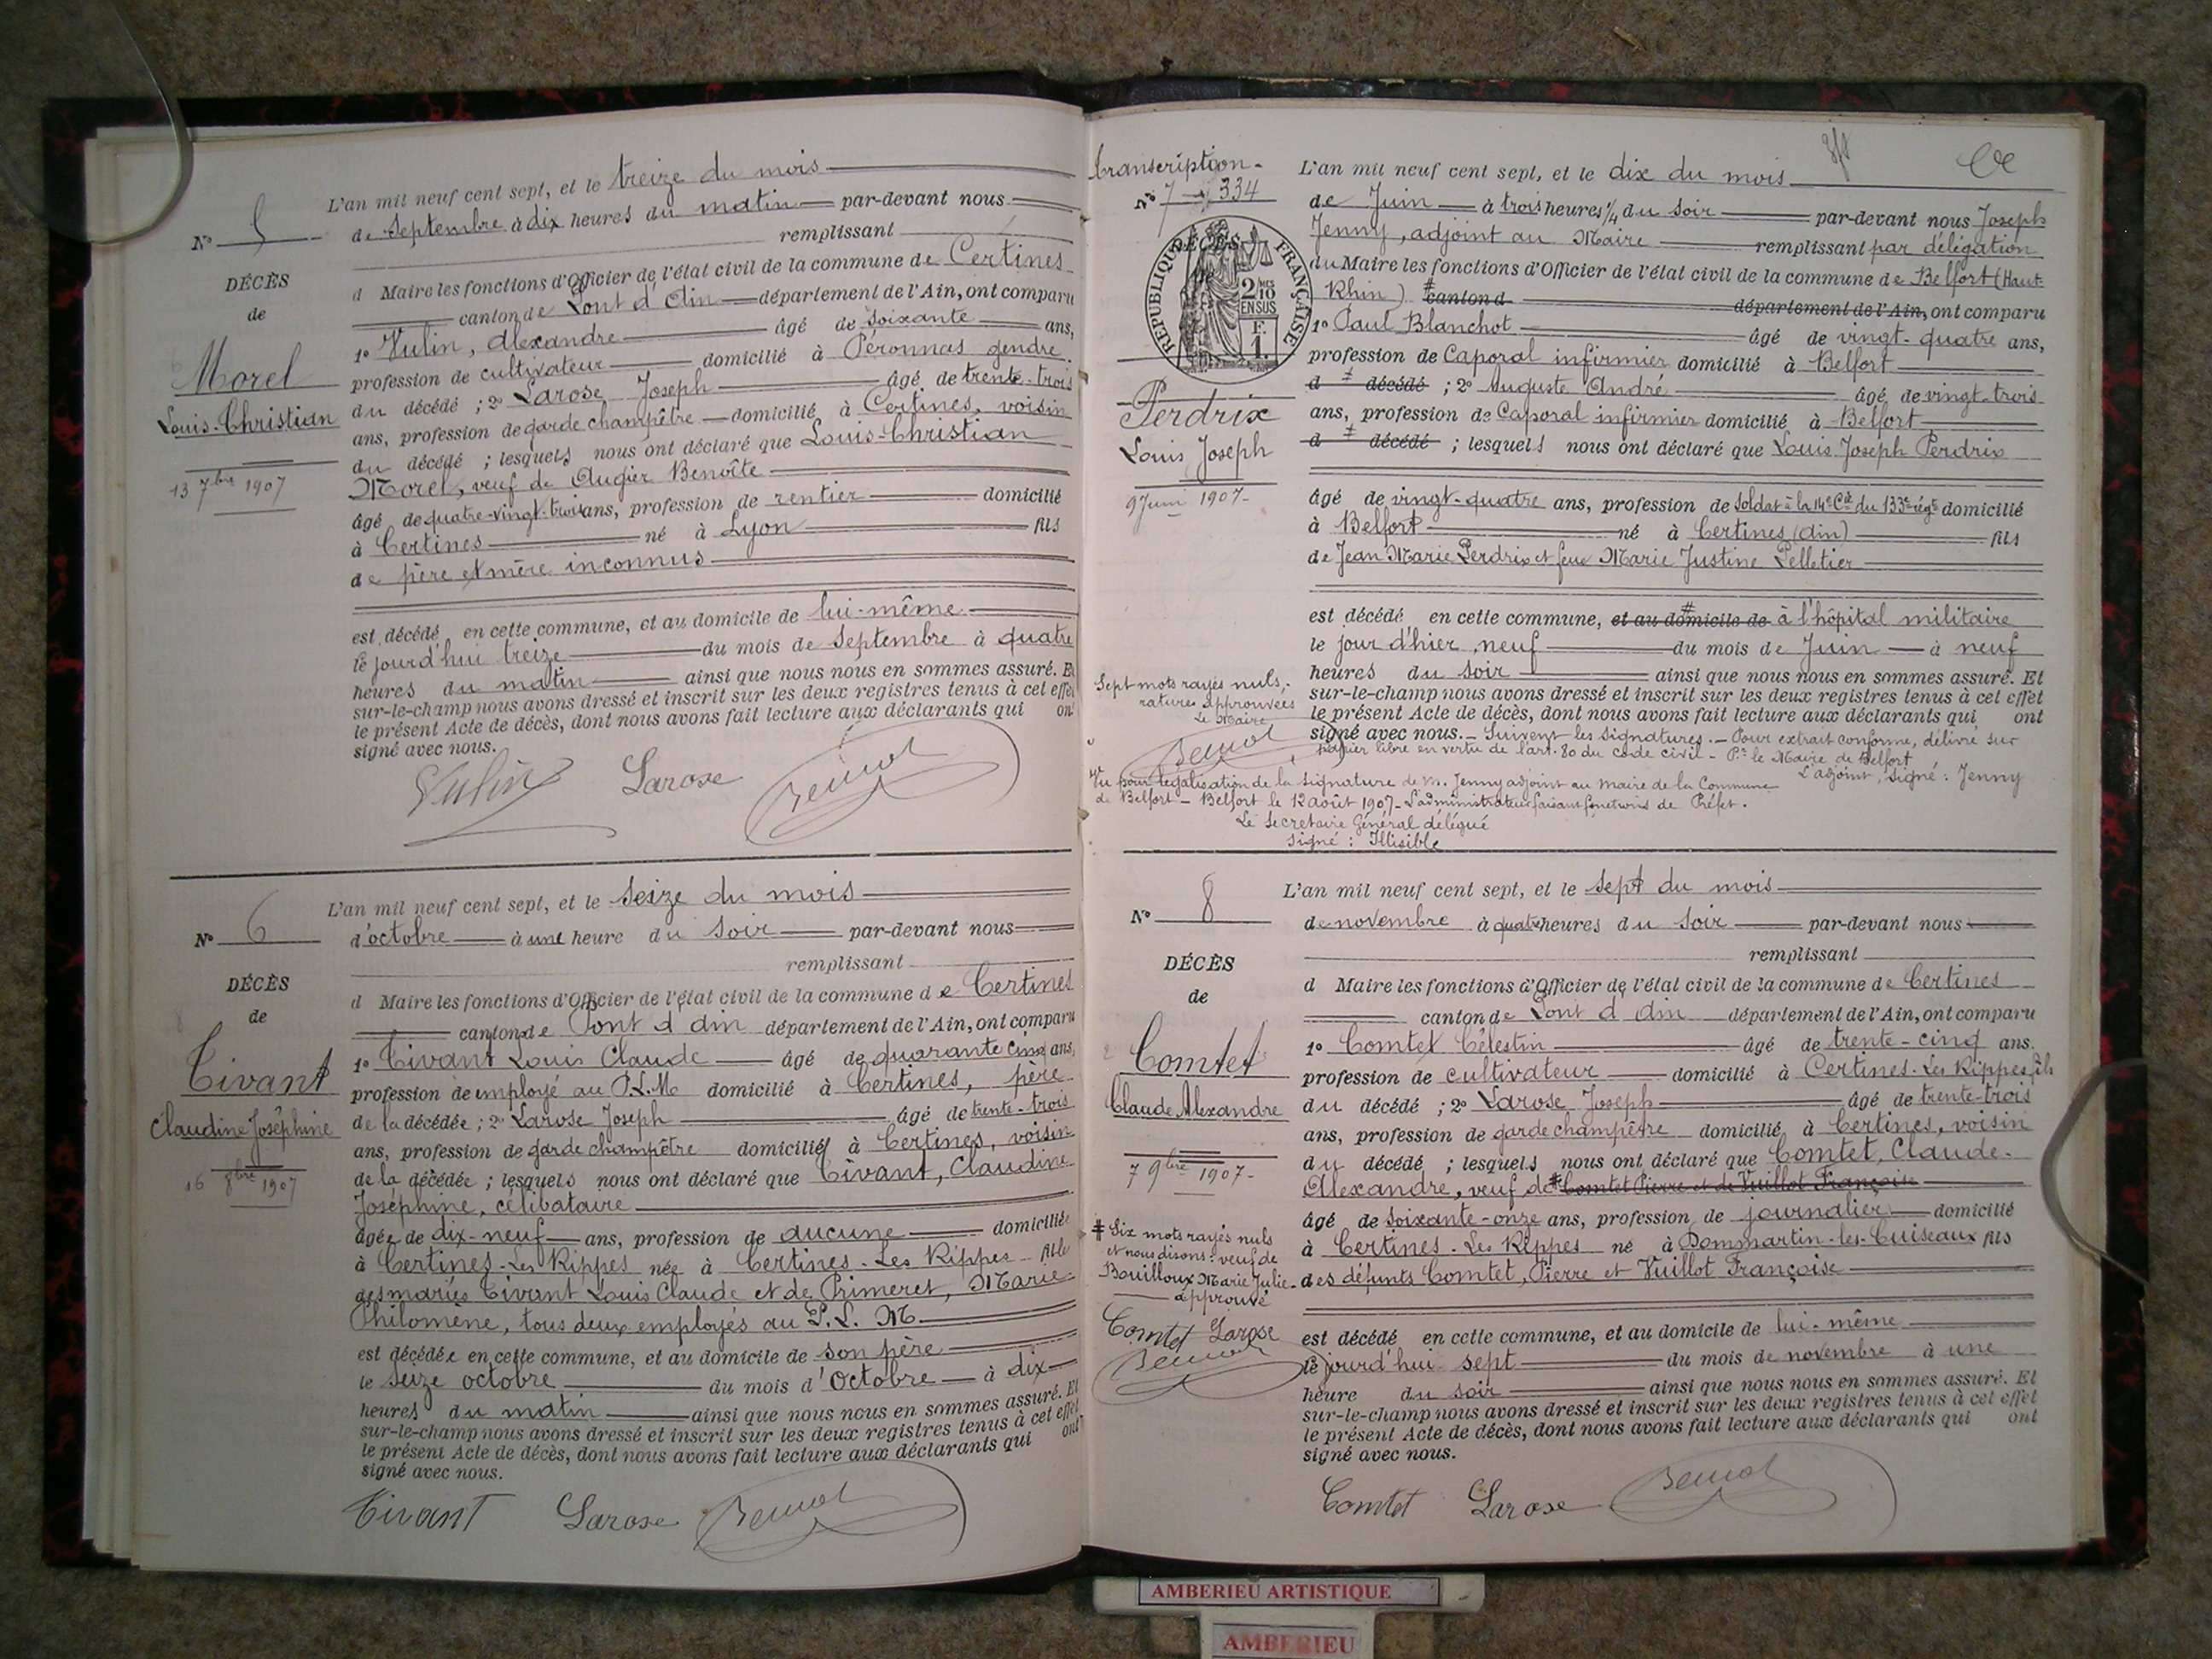 L'an mil neuf cent sept, et le treize du mois
N° 5
de Septembre à dix heures du matin par-devant nous
remplissant
DÉCÈS
d Maire les fonctions d'Officier de l'état civil de la commune de Certines
de
canton de Pont d'Ain département de l'Ain, ont comparu
1° Vulin, Alexandre âgé de soixante ans,
Morel
profession de cultivateur domicilié à Péronnas gendre
Louis-Christian
du décédé ; 2° Larose Joseph âgé de trente-trois
ans, profession de garde champêtre domicilié à Certines, voisin
13 7bre 1907
du décédé ; lesquels nous ont déclaré que Louis-Christian
Morel, veuf de Augier Benoîte
âgé de quatre-vingt-trois ans, profession de rentier domicilié
à Certines né à Lyon fils
de père et mère inconnus
est décédé en cette commune, et au domicile de lui-même
le jourd'hui treize du mois de Septembre à quatre
heures du matin ainsi que nous nous en sommes assuré. Et
sur-le-champ nous avons dressé et inscrit sur les deux registres tenus à cet effet
le présent Acte de décès, dont nous avons fait lecture aux déclarants qui ont
signé avec nous.
Vulin Larose
L'an mil neuf cent sept, et le Seize du mois
N° 6
d'octobre à une heure du Soir par-devant nous
remplissant
DÉCÈS
d Maire les fonctions d'Officier de l'état civil de la commune de Certines
de
canton de Pont d'Ain département de l'Ain, ont comparu
1° Tivant Louis Claude âgé de quarante cinq ans,
Tivant
profession de employé au P.L.M domicilié à Certines, père
Claudine Joséphine
de la décédée ; 2° Larose Joseph âgé de trente-trois
ans, profession de garde champêtre domiciliés à Certines, voisin
16 8bre 1907
de la décédée ; lesquels nous ont déclaré que Tivant, Claudine
Joséphine, célibataire
âgée de dix-neuf ans, profession de aucune domiciliée
à Certines-Les Rippes née à Certines-Les Rippes fille
des mariés Tivant Louis Claude et de Primeret, Marie
Philomène, tous deux employés au P.L.M
est décédée en cette commune, et au domicile de son père
le Seize octobre du mois d'Octobre à dix
heures du matin ainsi que nous nous en sommes assuré. Et
sur-le-champ nous avons dressé et inscrit sur les deux registres tenus à cet effet
le présent Acte de décès, dont nous avons fait lecture aux déclarants qui ont
signé avec nous.
Tivant Larose
transcription
N° 7 334
L'an mil neuf cent sept, et le dix du mois
de Juin à trois heures 1/4 du Soir par-devant nous Joseph
Jenny, adjoint au Maire remplissant par délégation
du Maire les fonctions d'Officier de l'état civil de la commune de Belfort (Haut-
Rhin) canton d département de l'Ain, ont comparu
DÉCÈS
REPUBLIQUE FRANÇAISE
2/10 EN SUS
F. 1.
1° Paul Blanchot âgé de vingt-quatre ans,
profession de Caporal infirmier domicilié à Belfort
d décédé ; 2° Auguste André âgé de vingt-trois
Perdrix
ans, profession de Caporal infirmier domicilié à Belfort
Louis Joseph
d décédé ; lesquels nous ont déclaré que Louis Joseph Perdrix
9 Juin 1907
âgé de vingt-quatre ans, profession de Soldat à la 14e Cie du 133e régt domicilié
à Belfort né à Certines (Ain) fils
de Jean Marie Perdrix et feue Marie Justine Pelletier
est décédé en cette commune, et au domicile de à l'hôpital militaire
le jour d'hier, neuf du mois de Juin à neuf
heures du soir ainsi que nous nous en sommes assuré. Et
Sept mots rayés nuls,
ratures approuvées
Le Maire
sur-le-champ nous avons dressé et inscrit sur les deux registres tenus à cet effet
le présent Acte de décès, dont nous avons fait lecture aux déclarants qui ont
signé avec nous. Suivent les signatures. Pour extrait conforme, délivré sur
papier libre en vertu de l'art. 80 du code civil - Pr le Maire de Belfort
L'adjoint, signé : Jenny
Vu pour légalisation de la signature de M. Jenny adjoint au maire de la Commune
de Belfort - Belfort le 12 août 1907 - L'administrateur faisant fonctions de Préfet.
Le Secrétaire Général délégué
Signé : Illisible
L'an mil neuf cent sept, et le sept du mois
N° 8
de novembre à quatre heures du Soir par-devant nous
remplissant
DÉCÈS
d Maire les fonctions d'Officier de l'état civil de la commune de Certines
de
canton de Pont d'Ain département de l'Ain, ont comparu
1° Comtet Célestin âgé de trente-cinq ans.
Comtet
profession de cultivateur domicilié à Certines-Les Rippes fils
Claude Alexandre
du décédé ; 2° Larose Joseph âgé de trente-trois
ans, profession de garde champêtre domicilié à Certines, voisin
7 9bre 1907
du décédé ; lesquels nous ont déclaré que Comtet, Claude-
Alexandre, veuf de Comtet Pierre et de Vuillot Françoise
âgé de soixante-onze ans, profession de journalier domicilié
à Certines-Les Rippes né à Dommartin-les-Cuiseaux fils
des défunts Comtet, Pierre et Vuillot Françoise
Six mots rayés nuls
et nous disons : veuf de
Bouilloux Marie Julie
approuvé
Comtet Larose
est décédé en cette commune, et au domicile de lui-même
le jourd'hui sept du mois de novembre à une
heure du soir ainsi que nous nous en sommes assuré. Et
sur-le-champ nous avons dressé et inscrit sur les deux registres tenus à cet effet
le présent Acte de décès, dont nous avons fait lecture aux déclarants qui ont
signé avec nous.
Comtet Larose
AMBERIEU ARTISTIQUE
AMBERIEU